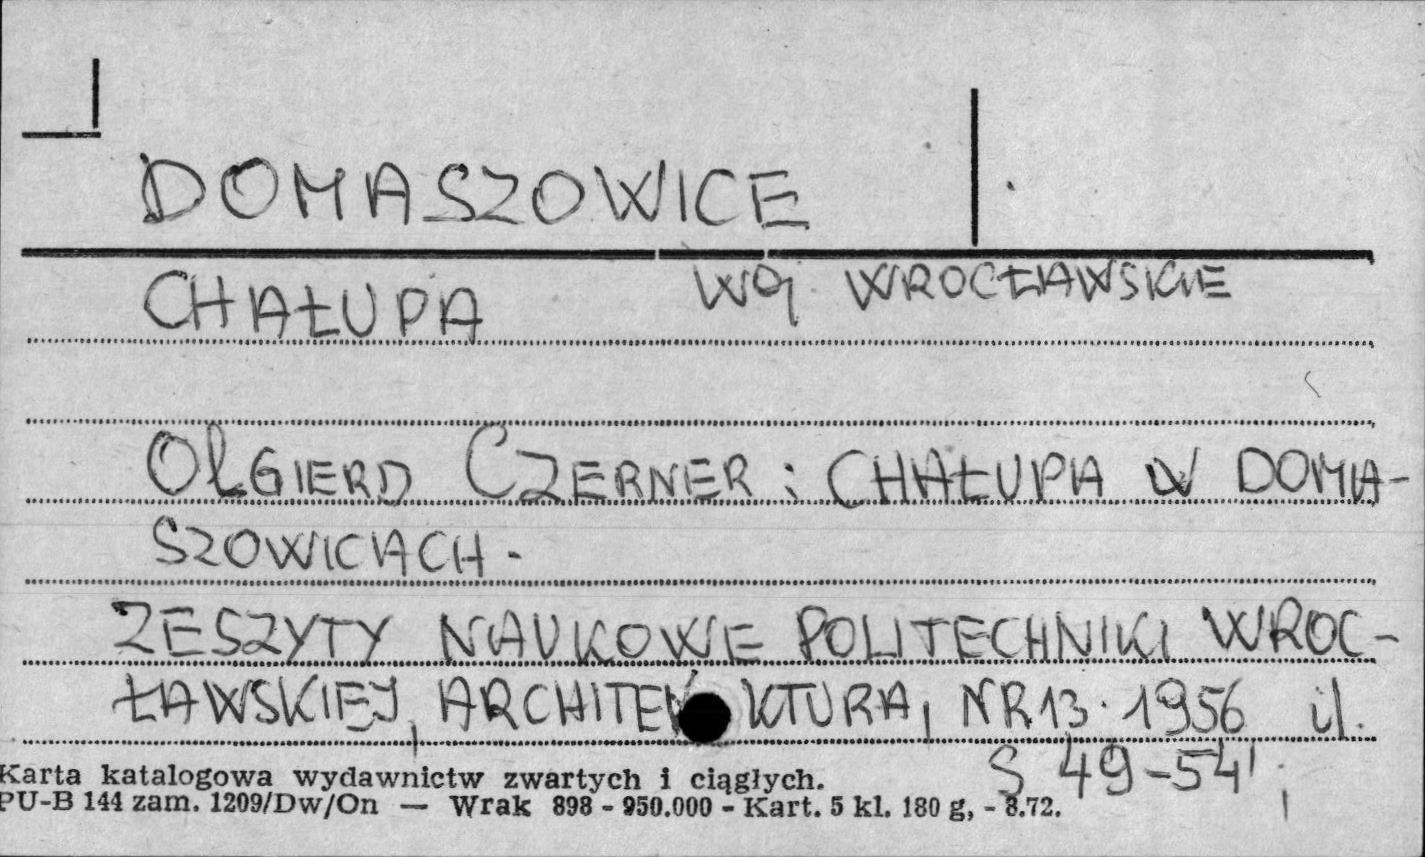 DOMASZOWICE
CHAŁUPA WOJ. WROCŁAWSKIE
OLGIERD CZERNER : CHAŁUPA W DOMA-
SZOWICACH -
ZESZYTY NAUKOWE POLITECHNIKI WROC-
ŁAWSKIEJ, ARCHITEK KTURA, NR 13. 1956 il.
S 49-54;
Karta katalogowa wydawnictw zwartych i ciągłych.
PU-B 144 zam. 1209/Dw/On — Wrak 898 - 950.000 - Kart. 5 kl. 180 g, - 8.72.